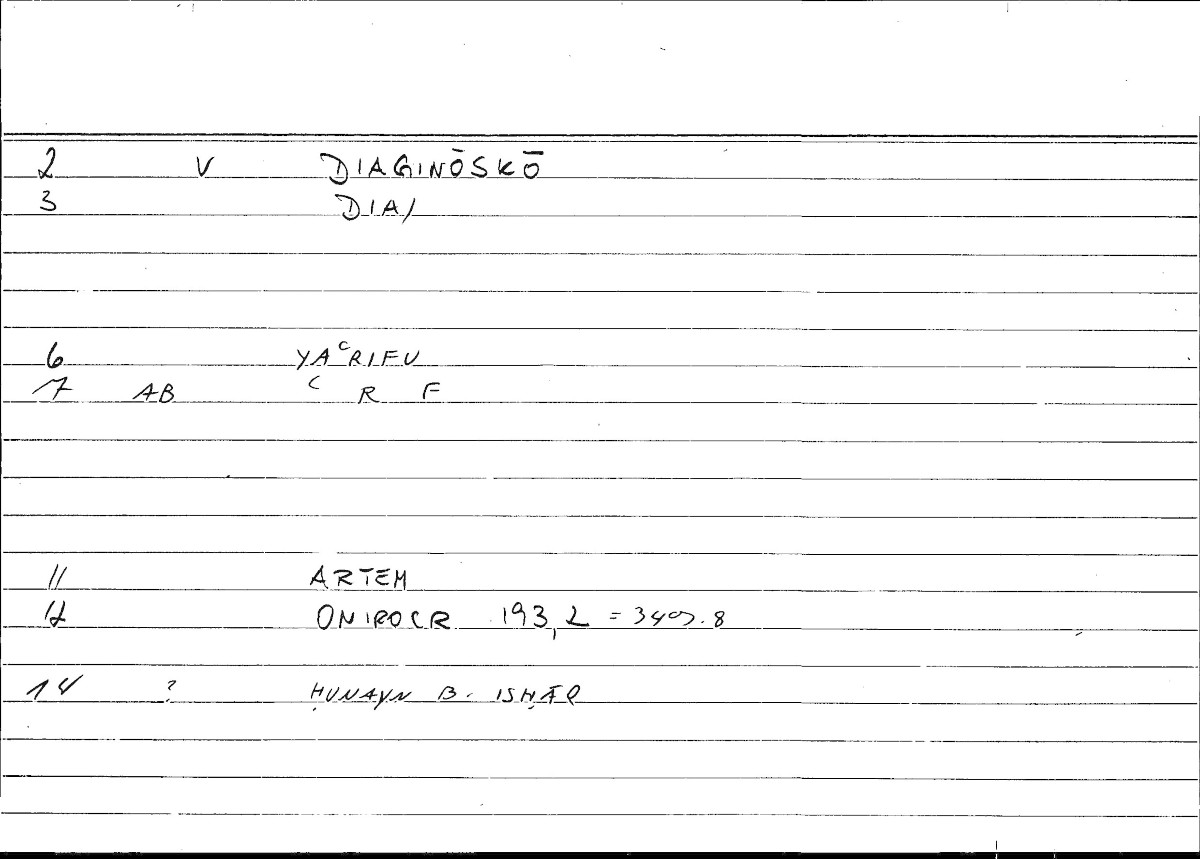 2 V DIAGINŌSKŌ
3 DIA/
6 YAᶜRIFU
7 AB ᶜ R F
11 ARTEM
12 ONIROCR 193,2 =
14 ? ḤUNAYN B. ISḤĀQ